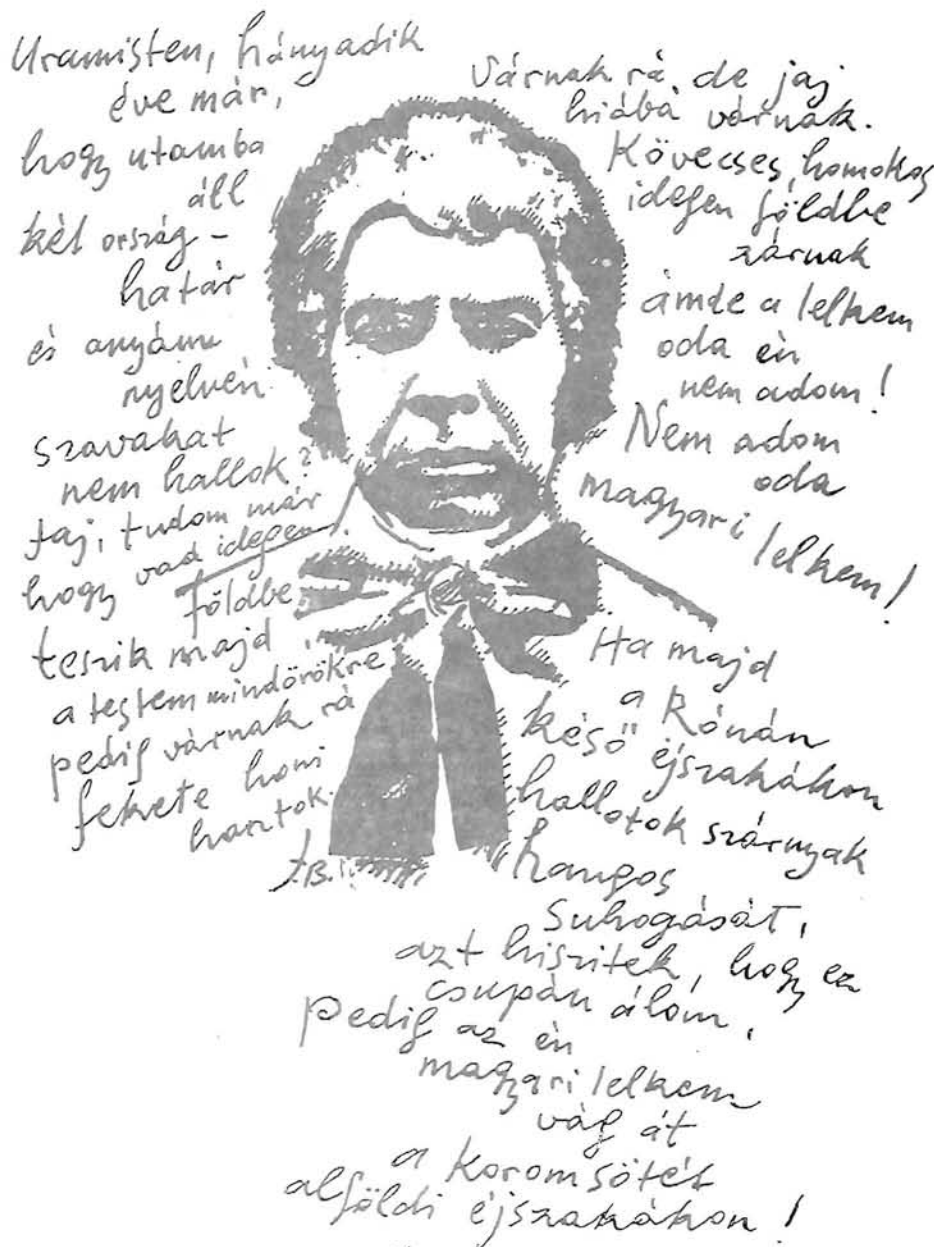 Uramisten, hányadik
éve már,
hogy utamba
áll
két ország-
határ
és anyám
nyelvén
szavakat
nem hallok?
Jaj, tudom már
hogy vad idegen
földbe
teszik majd
a testem mindörökre
pedig várnak rá
fekete honi
hantok.
Várnak rá, de jaj
hiába várnak.
Kövecses, homokos
idegen földbe
zárnak
ámde a lelkem
oda én
nem adom!
Nem adom
oda
magyari
lelkem!
Ha majd
a Rónán
késő éjszakákon
hallotok szárnyak
hangos
suhogását,
azt hiszitek, hogy ez
csupán álom,
Pedig az én
magyari lelkem
vág át
a koromsötét
alföldi éjszakákon!